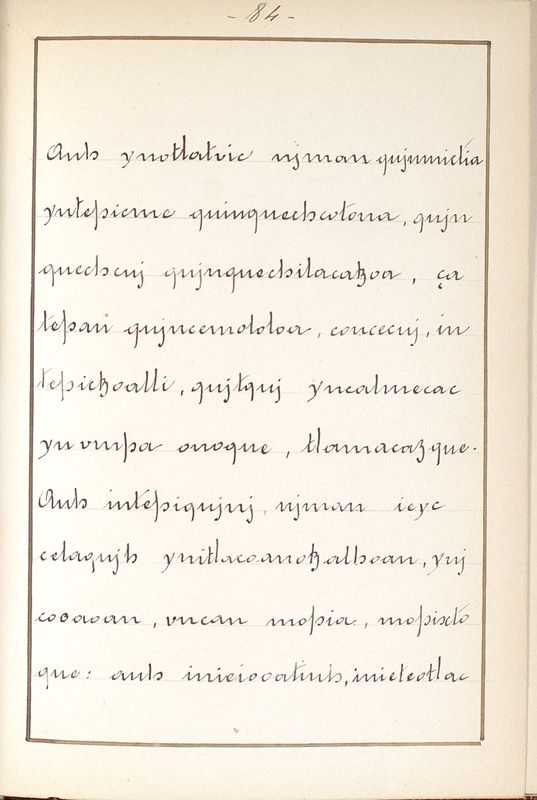 - 84 -
Auh ynotlatvic njman qujnmictia
yntepicme quinquechcotona, qujn
quechcuj qujnquechilacatzoa, ça
tepan qujncemololoa, concecuj, in
tepictzoalli, qujtquj yncalmecac
yn vmpa onoque, tlamacazque.
Auh intepiqujnj, njman ieyc
celaqujh ynitlacoanotzalhoan, ynj
cooaoan, vncan mopia, mopixto
que: auh inieiooatiuh, inieteotlac